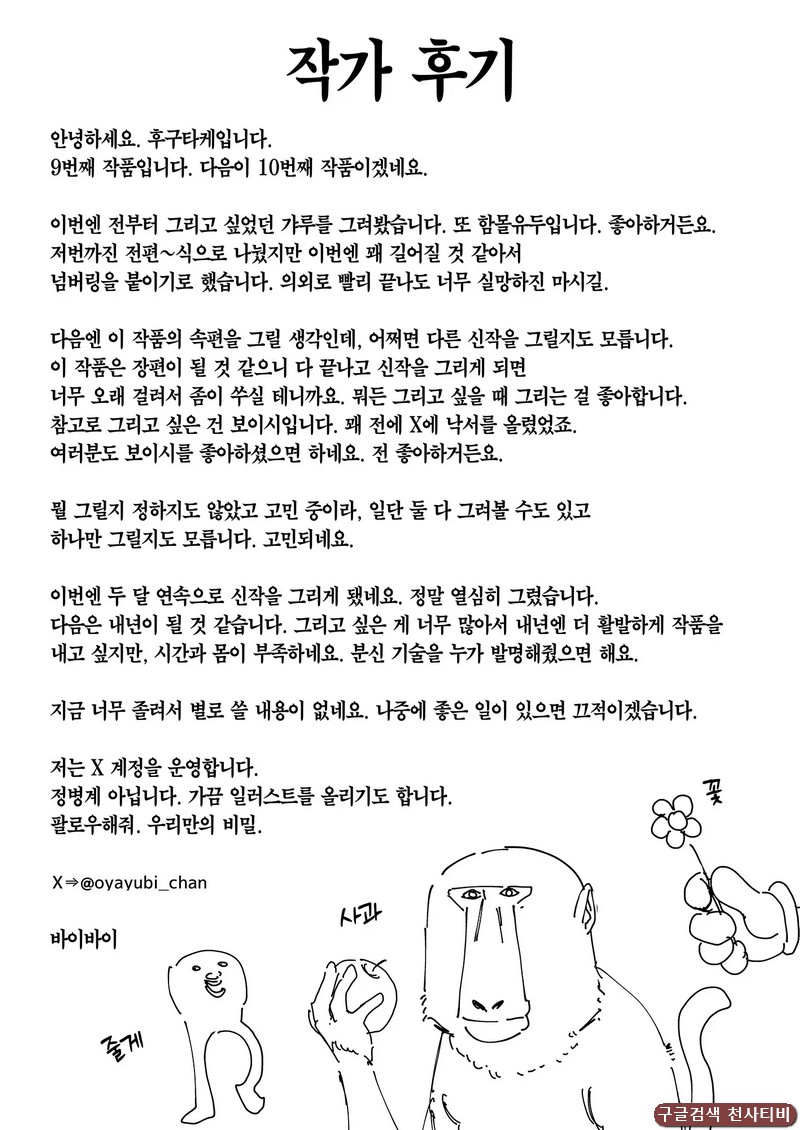 작가 후기
안녕하세요. 후구타케입니다.
9번째 작품입니다. 다음이 10번째 작품이겠네요.
이번엔 전부터 그리고 싶었던 갸루를 그려봤습니다. 또 함몰유두입니다. 좋아하거든요.
저번까진 전편~식으로 나눴지만 이번엔 꽤 길어질 것 같아서
넘버링을 붙이기로 했습니다. 의외로 빨리 끝나도 너무 실망하진 마시길.
다음엔 이 작품의 속편을 그릴 생각인데, 어쩌면 다른 신작을 그릴지도 모릅니다.
이 작품은 장편이 될 것 같으니 다 끝나고 신작을 그리게 되면
너무 오래 걸려서 좀이 쑤실 테니까요. 뭐든 그리고 싶을 때 그리는 걸 좋아합니다.
참고로 그리고 싶은 건 보이시입니다. 꽤 전에 X에 낙서를 올렸었죠.
여러분도 보이시를 좋아하셨으면 하네요. 전 좋아하거든요.
뭘 그릴지 정하지도 않았고 고민 중이라, 일단 둘 다 그려볼 수도 있고
하나만 그릴지도 모릅니다. 고민되네요.
이번엔 두 달 연속으로 신작을 그리게 됐네요. 정말 열심히 그렸습니다.
다음은 내년이 될 것 같습니다. 그리고 싶은 게 너무 많아서 내년엔 더 활발하게 작품을
내고 싶지만, 시간과 몸이 부족하네요. 분신 기술을 누가 발명해줬으면 해요.
지금 너무 졸려서 별로 쓸 내용이 없네요. 나중에 좋은 일이 있으면 끄적이겠습니다.
저는 X 계정을 운영합니다.
정병계 아닙니다. 가끔 일러스트를 올리기도 합니다.
팔로우해줘. 우리만의 비밀.
꽃
X⇒@oyayubi_chan
사과
바이바이
줄게
구글검색 천사티비